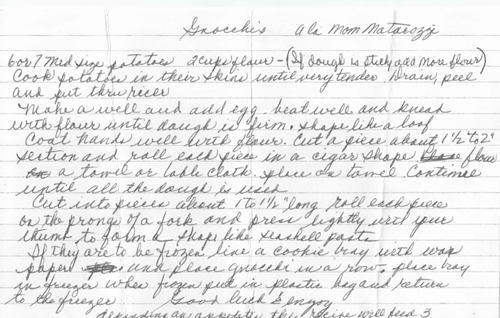 Gnocchi's Ala Mom Matarozzi
6 or 7 Med size potatoes 2 cups flour - (If dough is sticky add more flour)
Cook potatoes in their skins until very tender. Drain, peel
and put thru ricer
Make a well and add egg beat well and knead
with flour until dough is firm. Shape like a loaf
Coat hands well with flour. Cut a piece about 1 1/2 to 2"
section and roll each piece in a cigar shape flour
a towel or table cloth. place on towel Continue
until all the dough is used
Cut into pieces about 1 to 1 1/2" long roll each piece
or the prongs of a fork and press lightly with your
thumb to form a shape like seashell pasta
If they are to be frozen line a cookie tray with wax
paper and place gnocchi in a row. place tray
in freezer when frozen put in plastic bag and return
to the freezer Good luck & enjoy
depending on appetite this recipe will feed 3